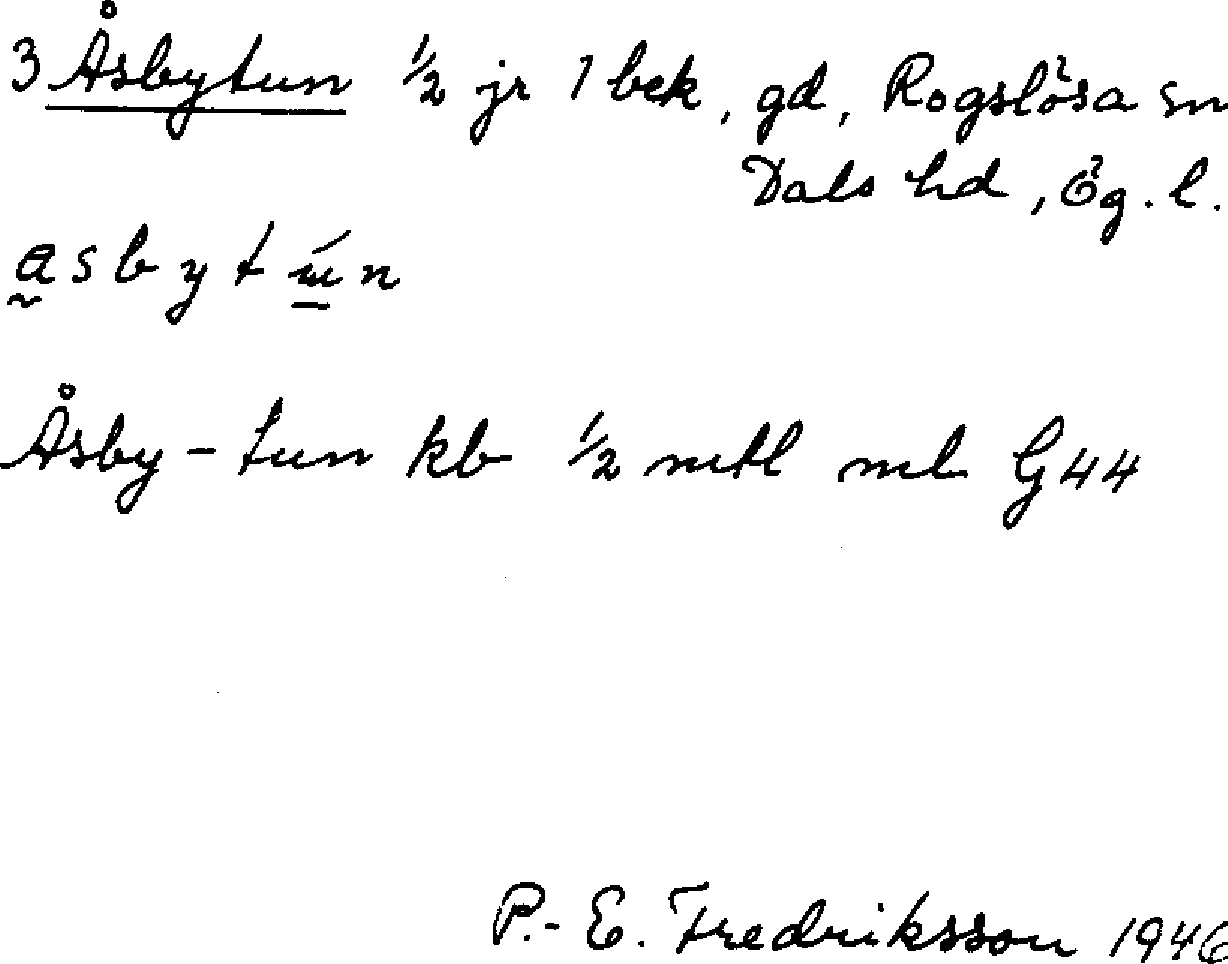 3 Åsbytun 1/2 jr 1 bek, gd, Rogslösa sn
Dals hd, Ög. l.
åsbytún
Åsby-tun kb 1/2 mtl ml G44
P.-E. Fredriksson 1946